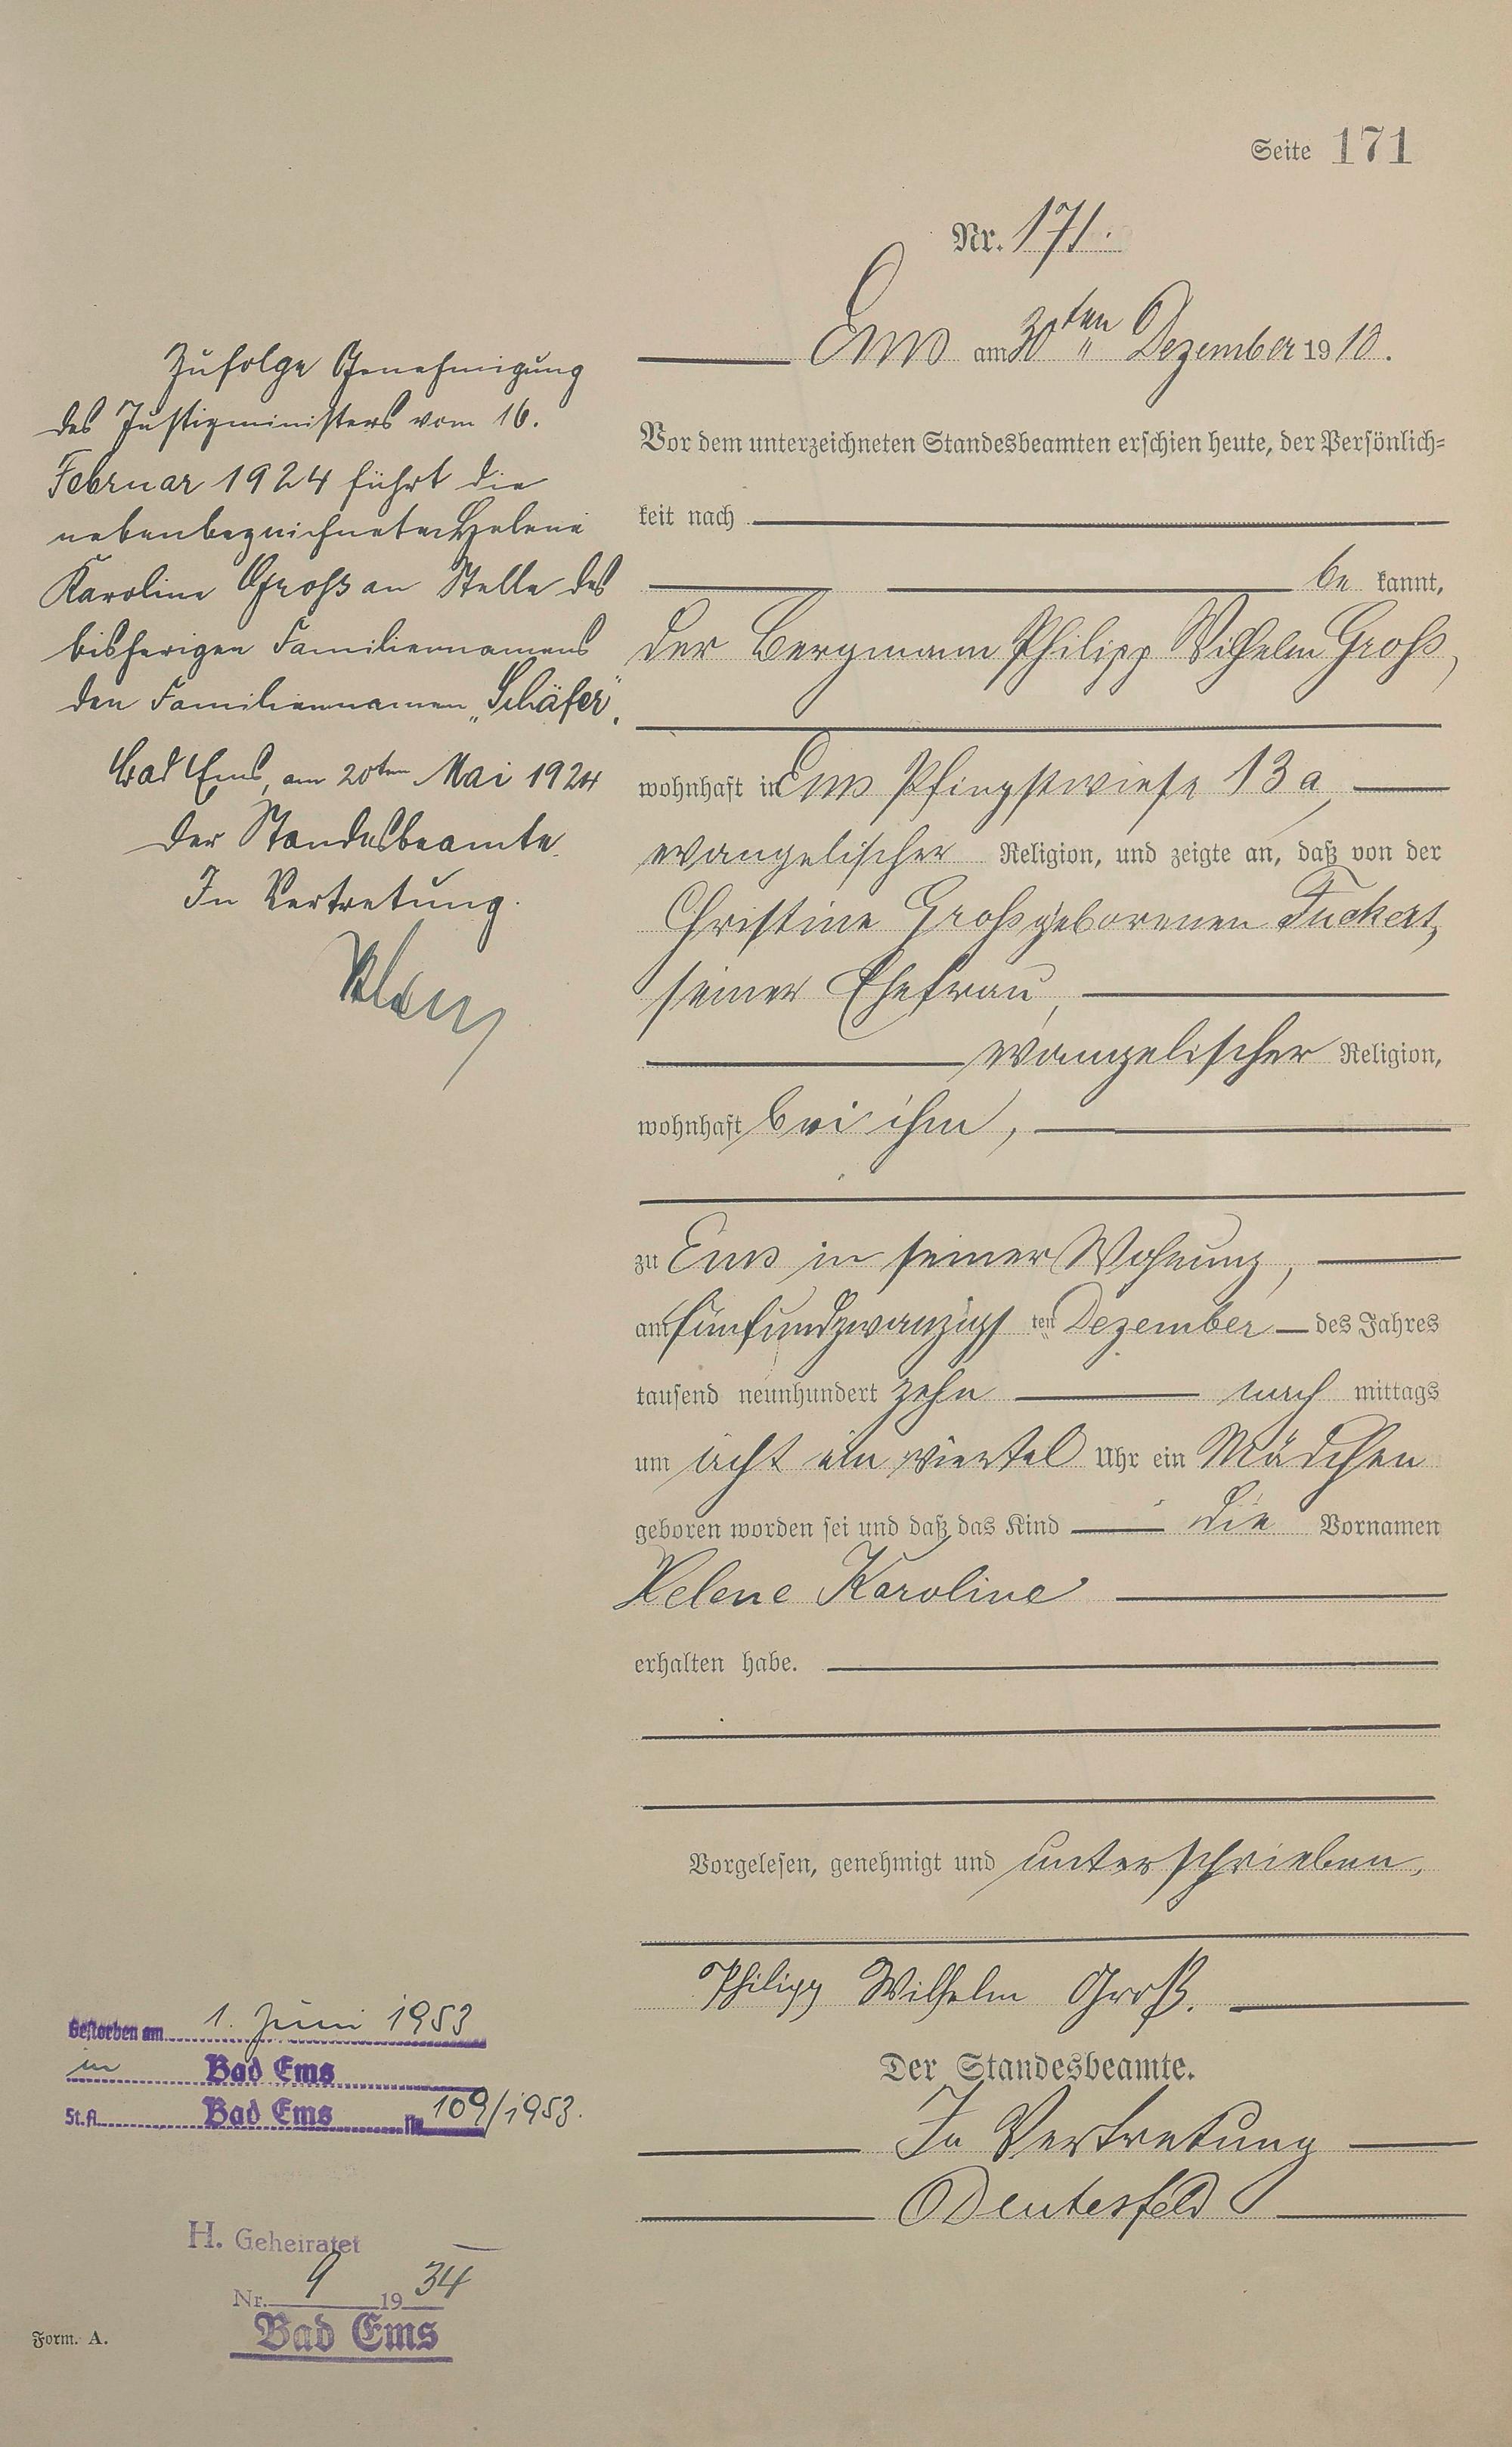 Seite 171
Nr. 171.
Ems am 30ten Dezember 1910.
Vor dem unterzeichneten Standesbeamten erschien heute, der Persönlich=
keit nach
be kannt,
der Bergmann Philipp Wilhelm Groß,
wohnhaft in Ems Pfingstwiese 13a,
evangelischer Religion, und zeigte an, daß von der
Christine Groß geborenen Fuckert,
seiner Ehefrau,
evangelischer Religion,
wohnhaft bei ihm,
zu Ems in seiner Wohnung,
am fünfundzwanzigs ten Dezember des Jahres
tausend neunhundert zehn nach mittags
um acht ein viertel Uhr ein Mädchen
geboren worden sei und daß das Kind die Vornamen
Helene Karoline
erhalten habe.
Vorgelesen, genehmigt und unterschrieben,
Philipp Wilhelm Groß.
Der Standesbeamte.
In Vertretung
Zufolge Genehmigung
des Justizministers vom 16.
Februar 1924 führt die
nebenbezeichnete Helene
Karoline Groß an Stelle des
bisherigen Familiennamens
den Familiennamen „Schäfer“.
Bad Ems, am 20ten Mai 1924
Der Standesbeamte.
In Vertretung.
Gestorben am 1. Juni 1953
in Bad Ems
St.A. Bad Ems Nr. 109/1953.
H. Geheiratet
Nr. 9 1934
Bad Ems
Form. A.